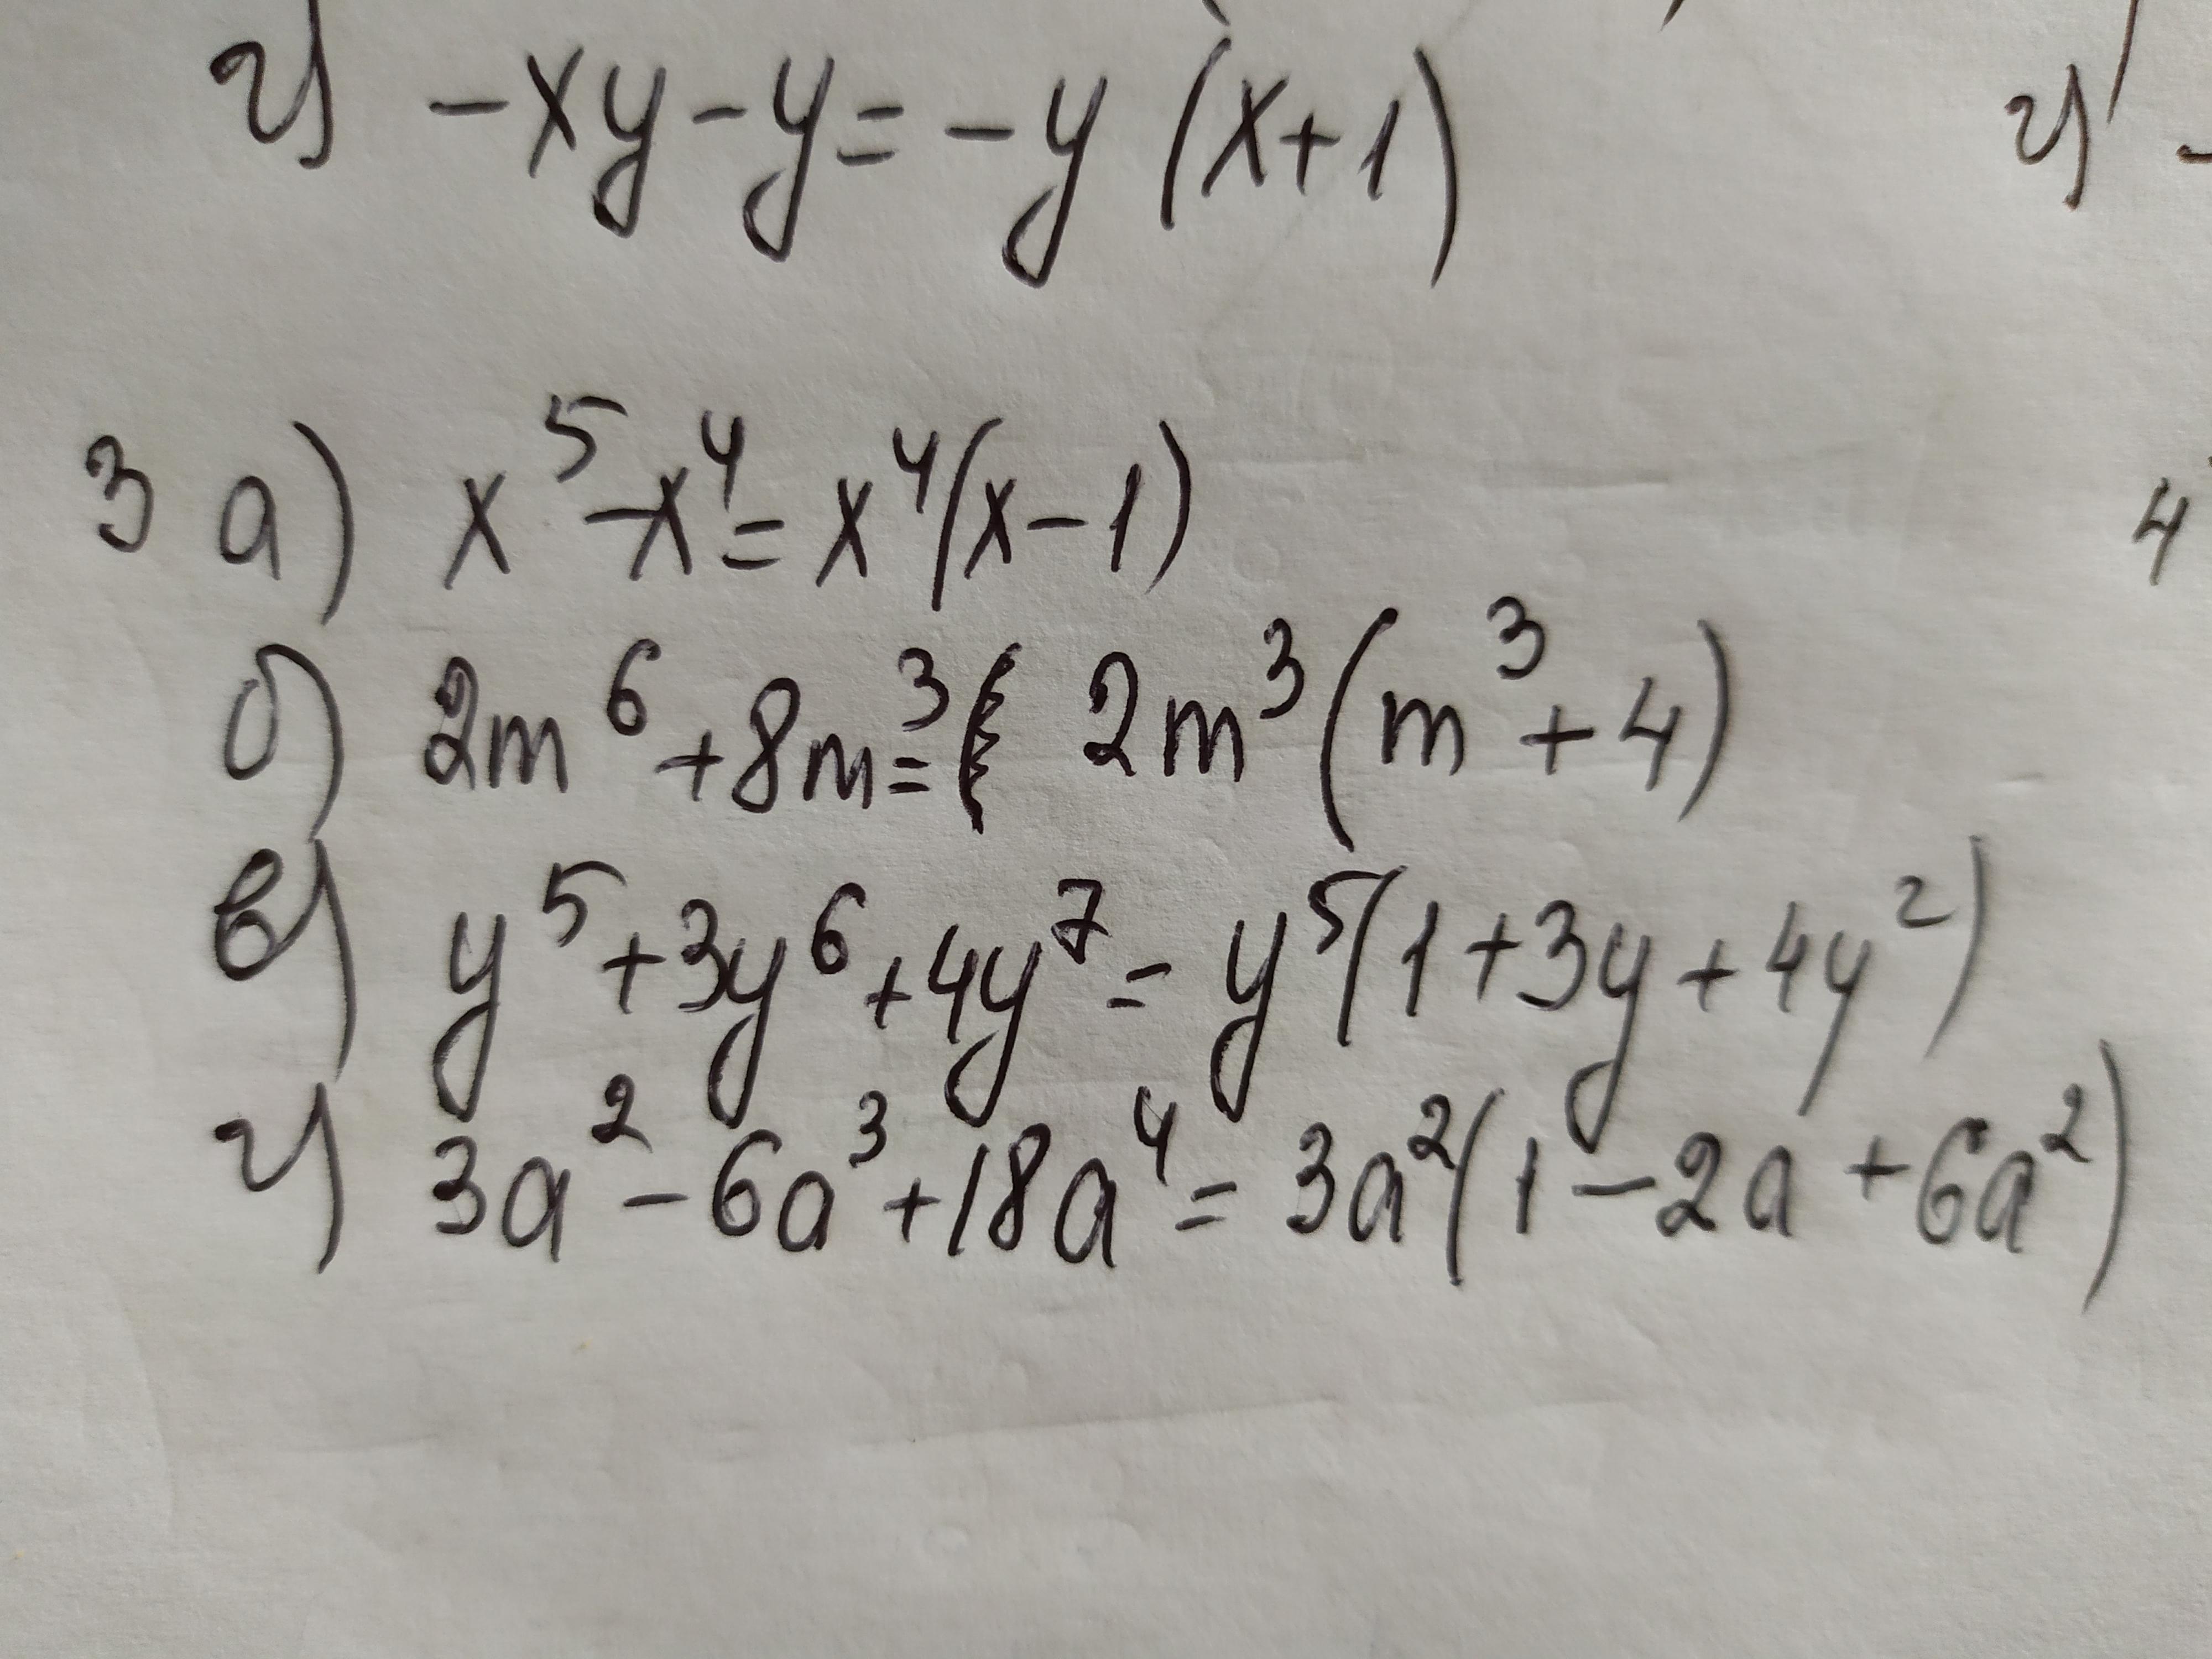 г) -xy-y=-y(x+1)
г) -
3 а) x⁵-x⁴=x⁴(x-1)
4
б) 2m⁶+8m³=2m³(m³+4)
в) y⁵+3y⁶+4y⁷=y⁵(1+3y+4y²)
г) 3a²-6a³+18a⁴=3a²(1-2a+6a²)